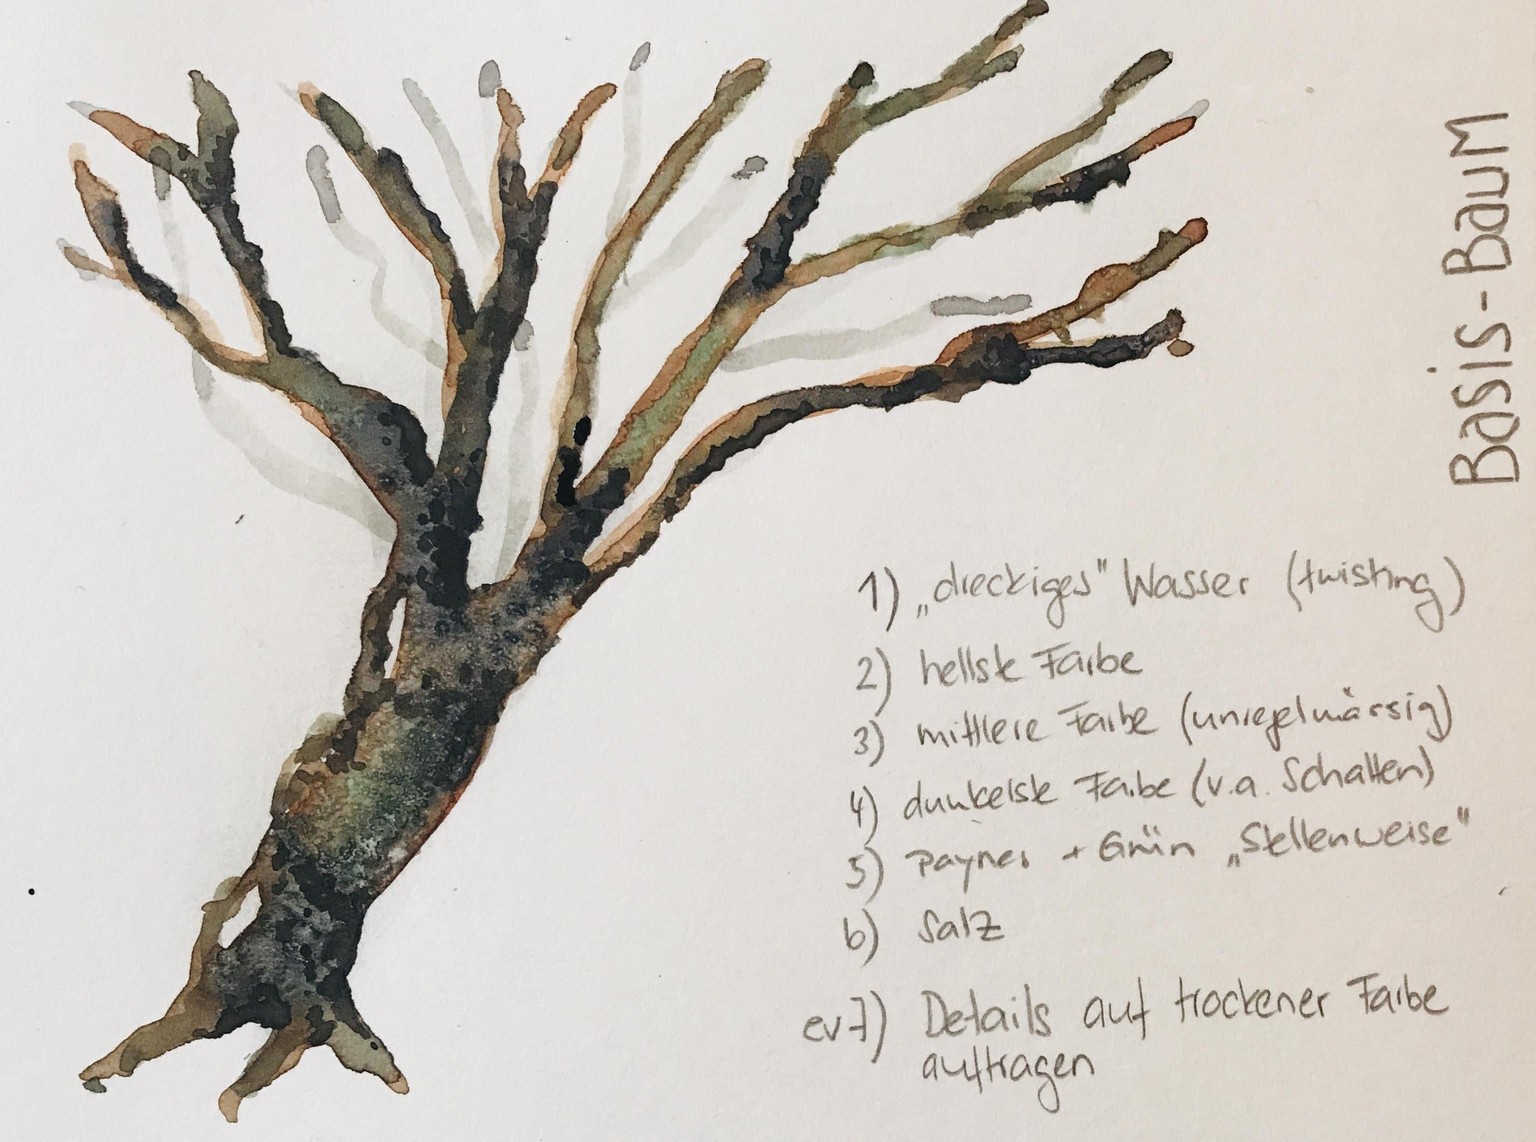 Basis-Baum
1) „dreckiges" Wasser (twisting)
2) hellste Farbe
3) mittlere Farbe (unregelmässig)
4) dunkelste Farbe (v.a. Schatten)
5) Paynes + Grün „Stellenweise"
6) Salz
ev 7) Details auf trockener Farbe
auftragen